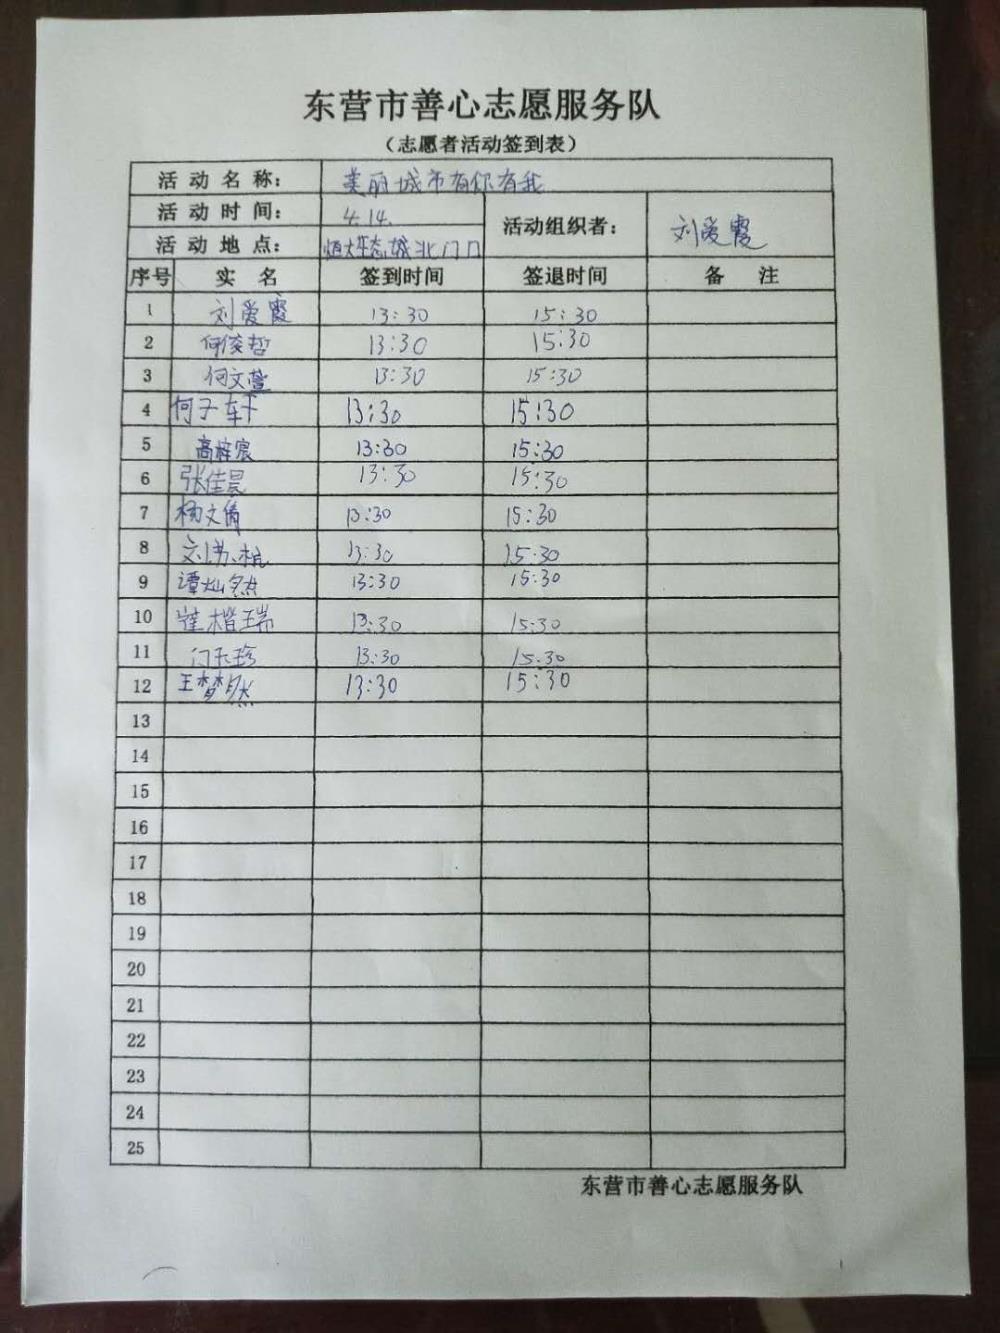 东营市善心志愿服务队
（志愿者活动签到表）
活动名称： 美丽城市有你有我
活动时间： 4.14. 活动组织者： 刘爱霞
活动地点： 恒大生态城北门口
序号 实名 签到时间 签退时间 备注
1 刘爱霞 13:30 15:30
2 何俊哲 13:30 15:30
3 何文萱 13:30 15:30
4 何子轩 13:30 15:30
5 高梓宸 13:30 15:30
6 张佳昊 13:30 15:30
7 杨文倩 13:30 15:30
8 13:30 15:30
9 谭灿然 13:30 15:30
10 崔楷瑞 13:30 15:30
11 门玉珍 13:30 15:30
12 王梦然 13:30 15:30
13
14
15
16
17
18
19
20
21
22
23
24
25
东营市善心志愿服务队